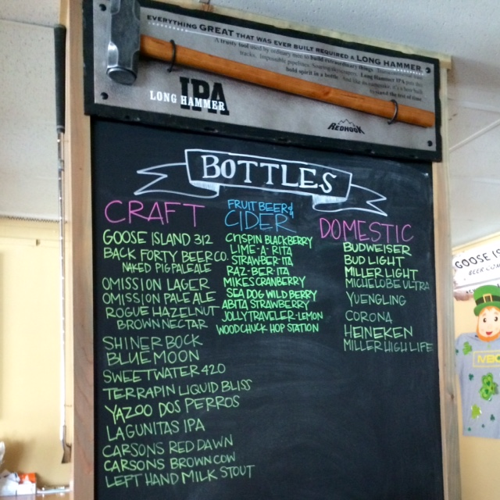 EVERYTHING GREAT THAT WAS EVER BUILT REQUIRED A LONG HAMMER.
LONG HAMMER IPA
REDHOOK
BOTTLES
CRAFT
GOOSE ISLAND 312
BACK FORTY BEER CO.
NAKED PIG PALE ALE
OMISSION LAGER
OMISSION PALE ALE
ROGUE HAZELNUT
BROWN NECTAR
SHINER BOCK
BLUE MOON
SWEETWATER 420
TERRAPIN LIQUID BLISS
YAZOO DOS PERROS
LAGUNITAS IPA
CARSONS RED DAWN
CARSONS BROWN COW
LEFT HAND MILK STOUT
FRUIT BEER &
CIDER
CRISPIN BLACKBERRY
LIME-A-RITA
STRAW-BER-ITA
RAZ-BER-ITA
MIKES CRANBERRY
SEA DOG WILD BERRY
ABITA STRAWBERRY
JOLLY TRAVELER-LEMON
WOODCHUCK HOP STATION
DOMESTIC
BUDWEISER
BUD LIGHT
MILLER LIGHT
MICHELOBE ULTRA
YUENGLING
CORONA
HEINEKEN
MILLER HIGH LIFE
GOOSE IS